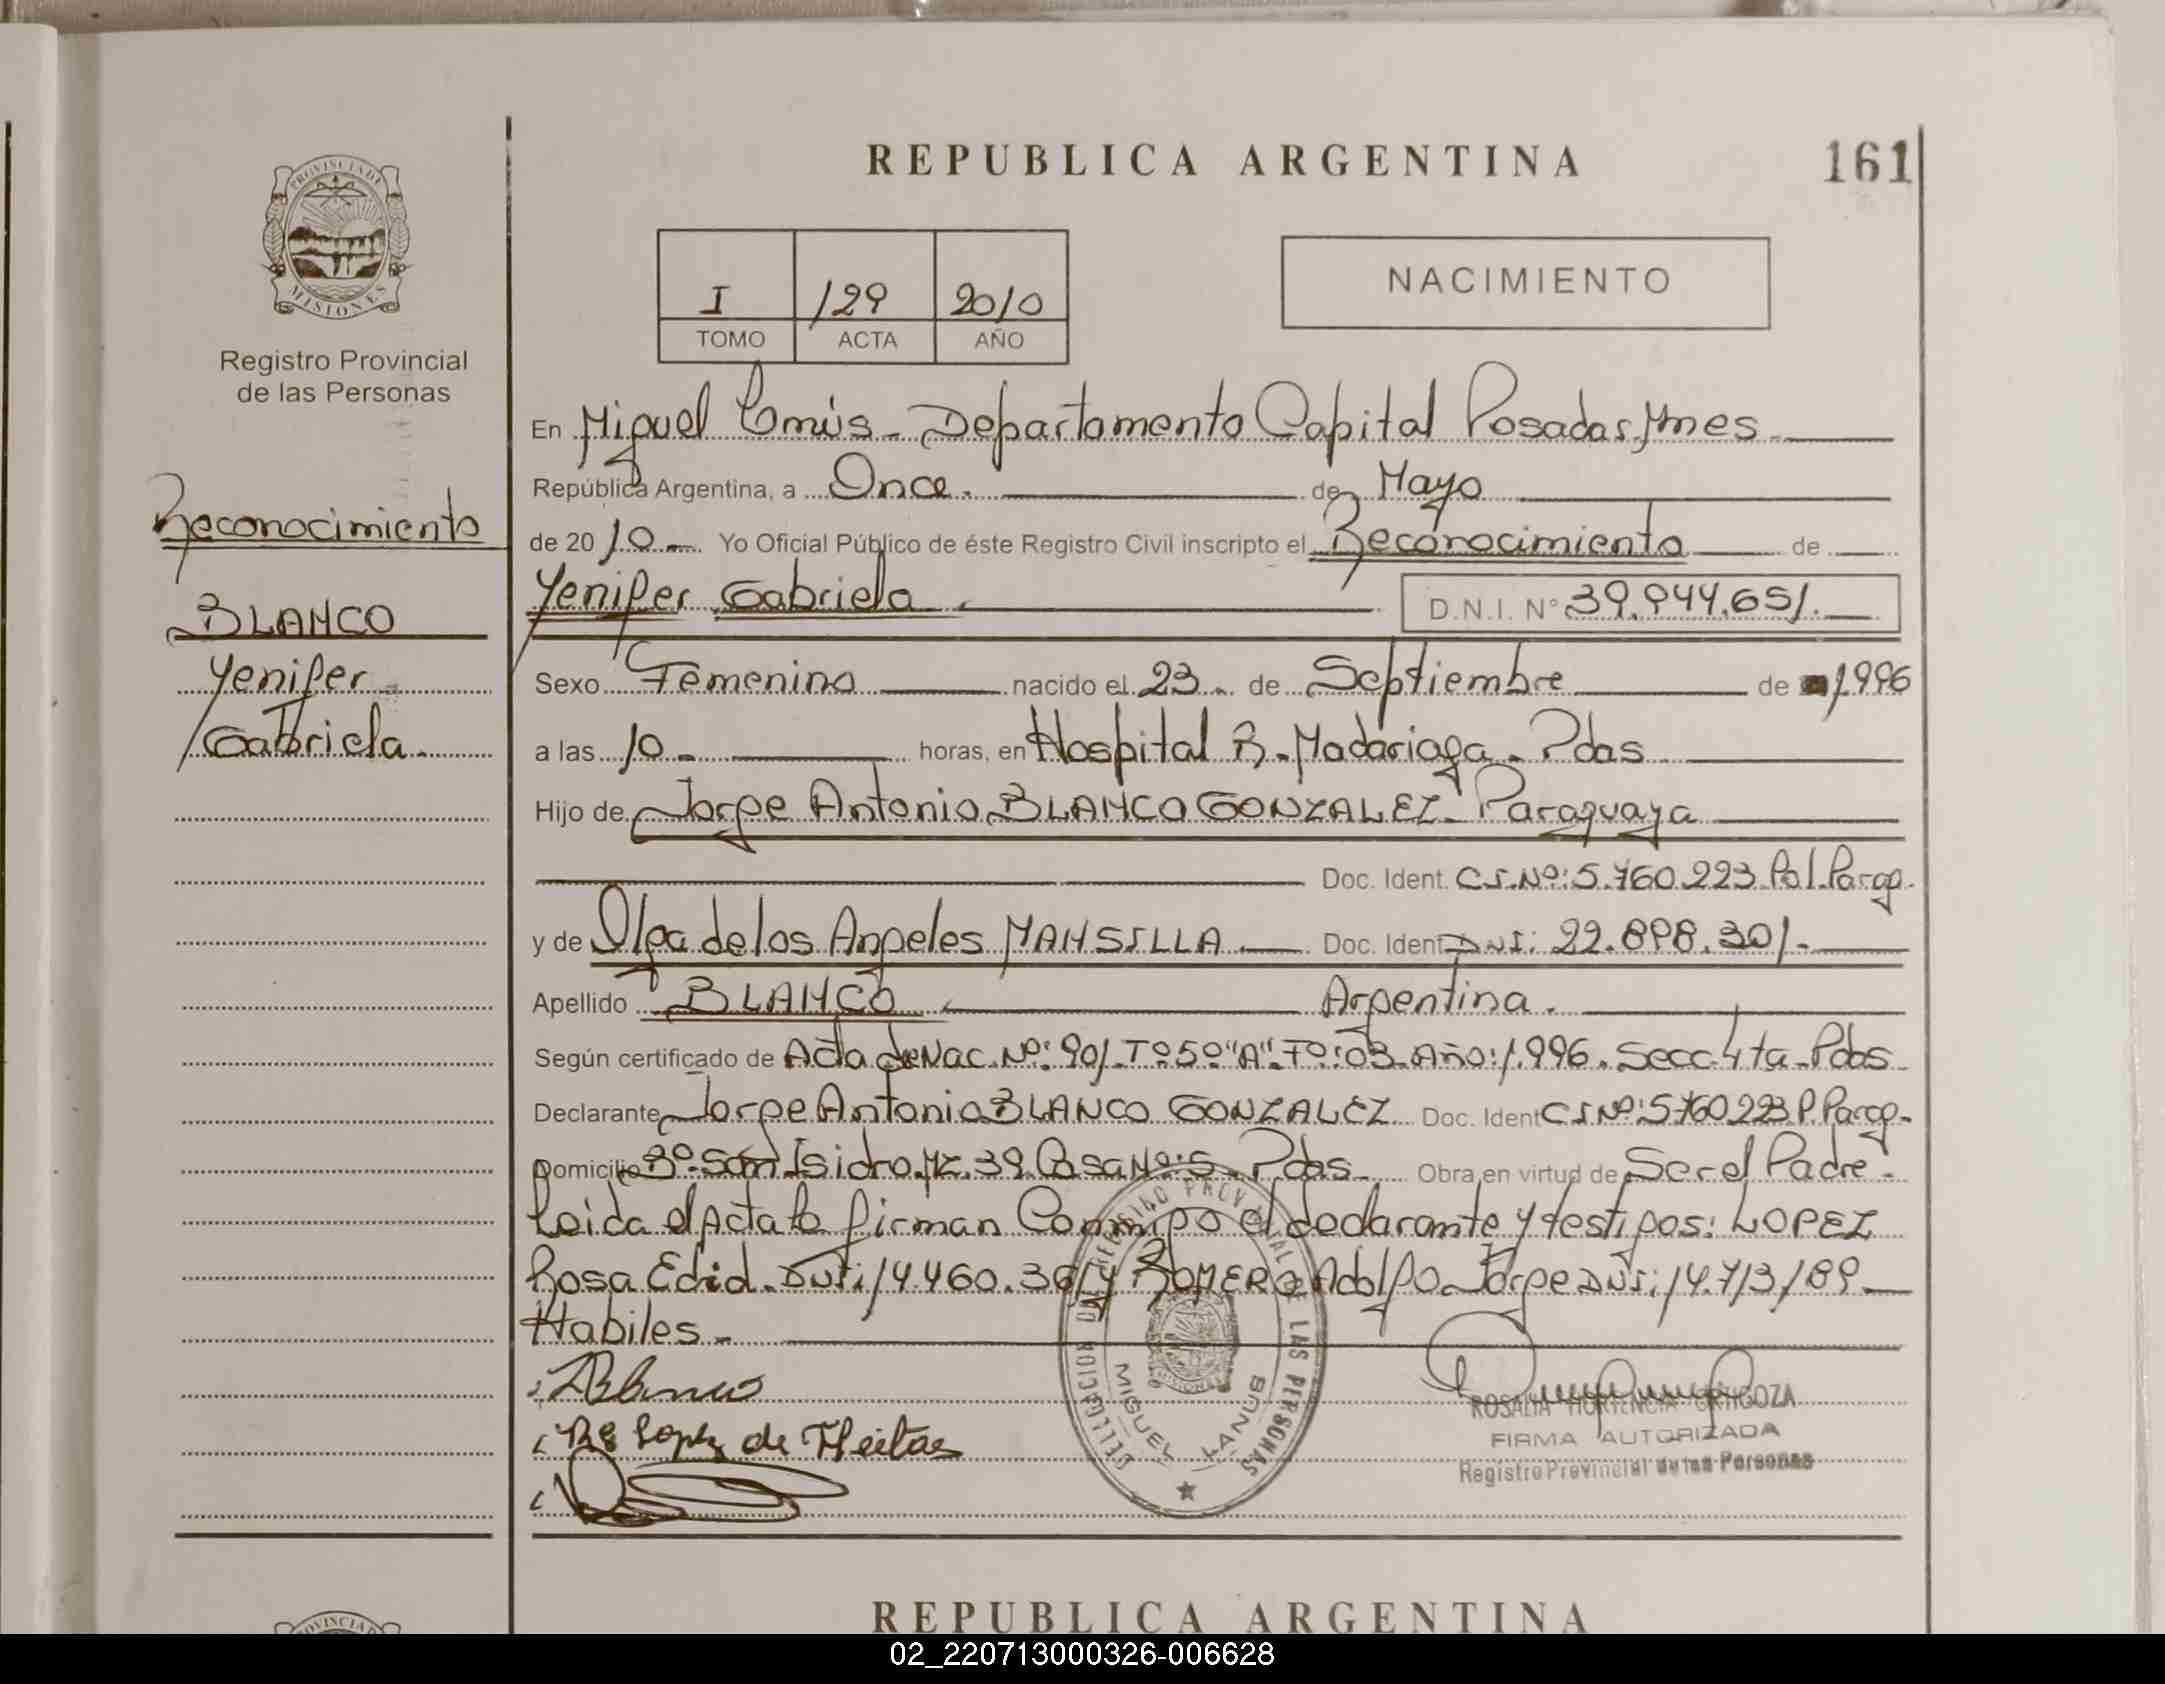 REPUBLICA ARGENTINA
161
PROVINCIA DE
MISIONES
Registro Provincial
de las Personas
I 129 2010
TOMO ACTA AÑO
NACIMIENTO
Reconocimiento
BLANCO
Yenifer
Gabriela.
En Miguel Lanús - Departamento Capital Posadas, Mnes
República Argentina, a Once. de Mayo
de 20 10 - Yo Oficial Público de éste Registro Civil inscripto el Reconocimiento de
Yenifer Gabriela D.N.I. Nº 39.944.651.
Sexo Femenino nacido el 23 - de Septiembre de 1996
a las 10 - horas, en Hospital R. Madariaga - Pdas
Hijo de Jorge Antonio BLANCO GONZALEZ - Paraguaya
Doc. Ident. C.I. Nº: 5.760.223 Pol. Parag.
y de Olga de los Angeles MANSILLA Doc. Ident DNI: 22.898.301.-
Apellido BLANCO Argentina.
Según certificado de Acta de Nac. Nº: 901 Tº 5º "A" Fº: 03 Año: 1.996. Secc 4ta - Pdas
Declarante Jorge Antonio BLANCO GONZALEZ Doc. Ident C.I Nº: 5760.223 P. Parag.
Domicilio Bº San Isidro Mz. 39 Casa Nº: 5 - Pdas Obra en virtud de Ser el Padre.
Leida el Acta la firman Conmigo el declarante y testigos: LOPEZ
Rosa Edid. DNI: 14.460.361 y ROMERO Adolfo Jorge DNI: 14.713.189
Habiles -
Blanco
Lopez de Freitas
DELEGACION DEL REGISTRO PROVINCIAL DE LAS PERSONAS
MIGUEL LANUS
ROSALIA HORTENCIA ORTIGOZA
FIRMA AUTORIZADA
Registro Provincial de las Personas
REPUBLICA ARGENTINA
02_220713000326-006628